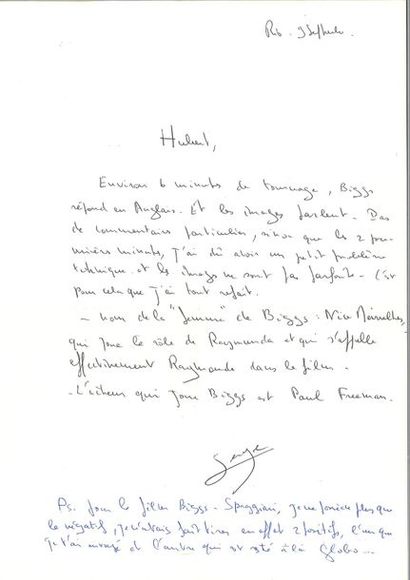 Rio. 9 Septembre
Hubert,
Environ 6 minutes de tournage, Biggs
répond en Anglais. Et les images parlent. Pas
de commentaires particuliers, sinon que les 2 pre-
mières minutes, j'ai dû avoir un petit problème
technique et les images ne sont pas parfaites. C'est
pour cela que j'ai tout refait.
- nom de la "femme" de Biggs : Nice Meirelles,
qui joue le rôle de Raymunda et qui s'appelle
effectivement Raymunda dans le film.
- L'acteur qui joue Biggs est Paul Freeman.
Serge
Ps. Pour le film Biggs - Spaggiari, je ne possède plus que
le négatif, je n'avais fait tirer en effet 2 positifs, l'un que
je t'ai envoyé et l'autre qui est resté à la Globo...